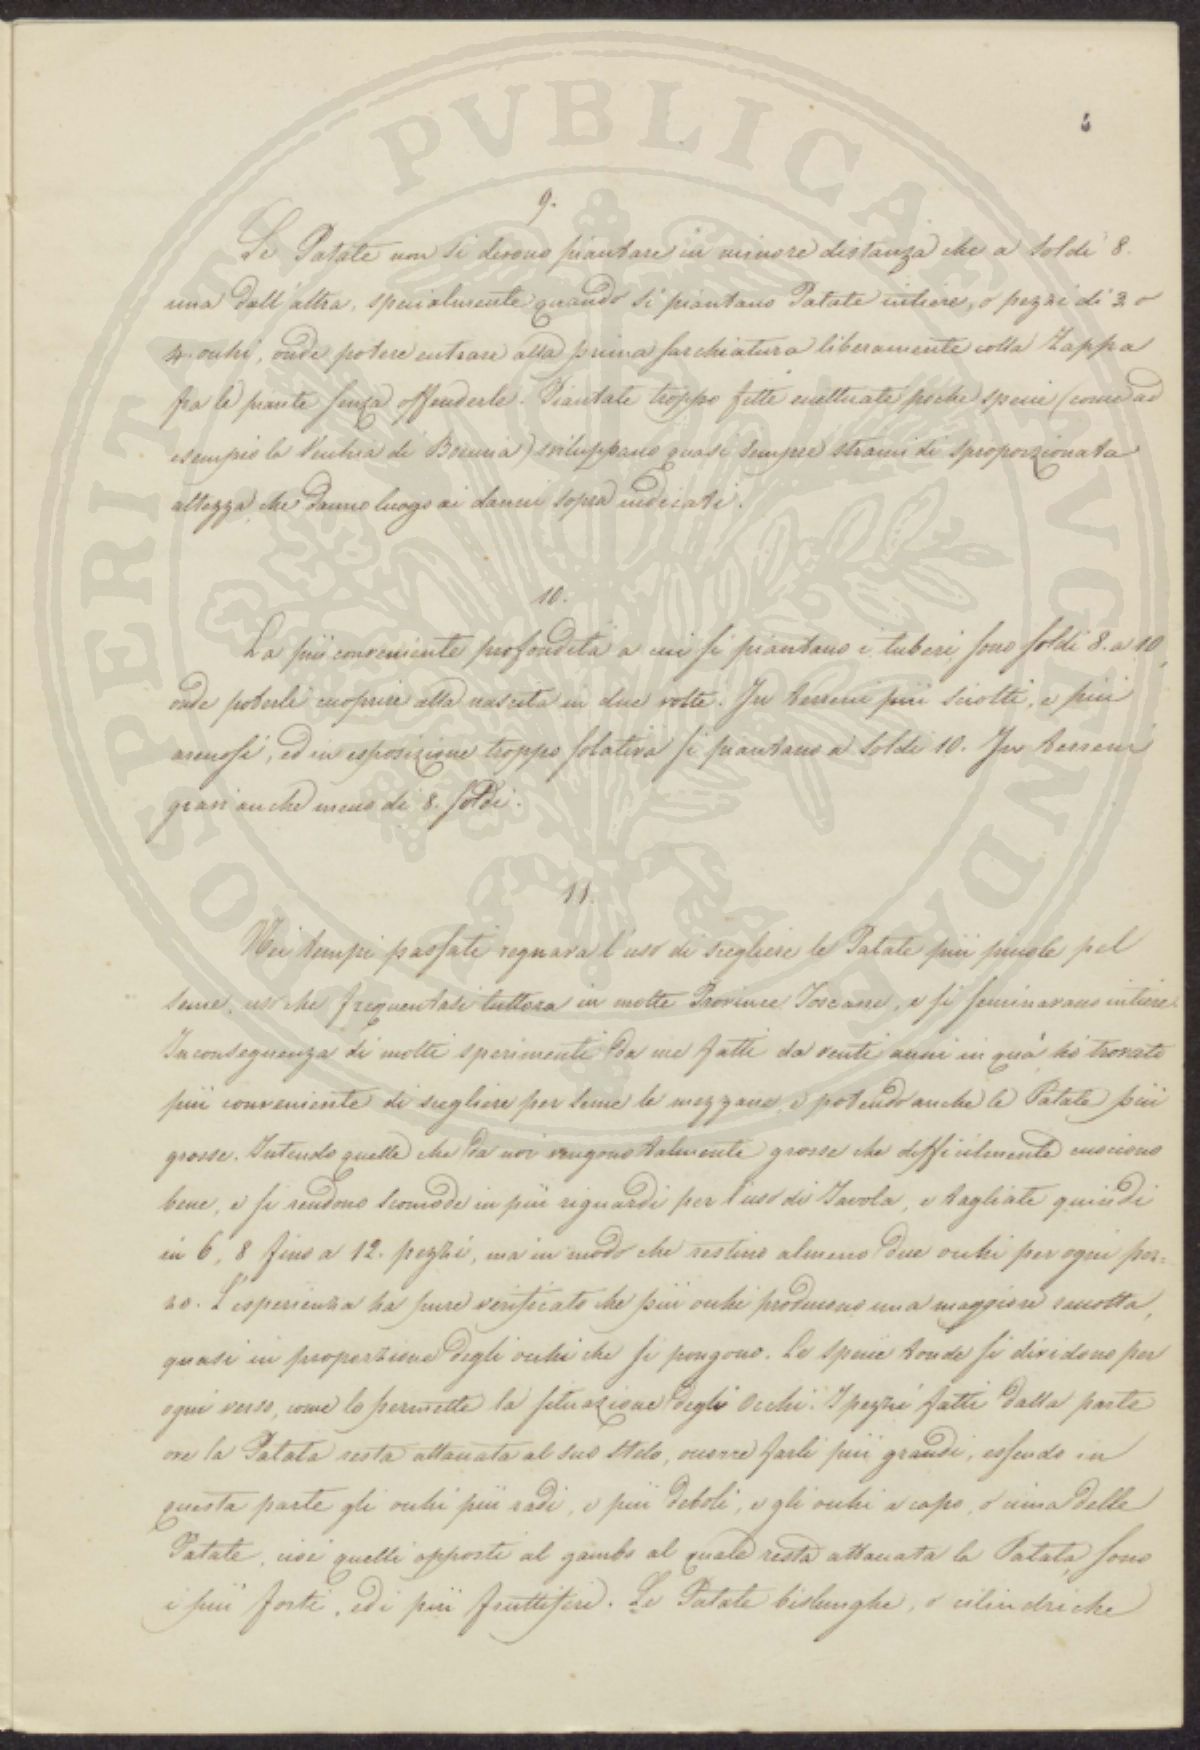 PROSPERITATI PUBLICAE AUGENDAE
9.
Le Patate non si devono piantare in minore distanza che a soldi 8.
una dall'altra, specialmente quando si piantano Patate intiere, o pezzi di 3 o
4. occhi, onde potere entrare alla prima sarchiatura liberamente colla Zappa
fra le piante senza offenderle. Piantate troppo fitte eccettuate poche specie (come ad
esempio la Vecchia di Boemia) sviluppano quasi sempre strami di sproporzionata
altezza che danno luogo ai danni sopra indicati.
10.
La più conveniente profondità a cui si piantano i tuberi sono soldi 8. a 10,
onde poterli cuoprire alla nascita in due volte. In terreni più sciolti, e più
arenosi, ed in esposizione troppo solativa si piantano a soldi 10. In terreni
gravi anche meno di 8. soldi.
11.
Nei tempi passati regnava l'uso di scegliere le Patate più piccole pel
seme, uso che frequentasi tuttora in molte Province Toscane, e si seminavano intiere.
In conseguenza di molti sperimenti da me fatti da venti anni in quà, hò trovato
più conveniente di scegliere per seme le mezzane, e potendo anche le Patate più
grosse. Intendo quelle che da noi vengono talmente grosse che difficilmente cuociono
bene, e si rendono scomode in più riguardi per l'uso di Tavola, e tagliate quindi
in 6, 8 fino a 12. pezzi, ma in modo che restino almeno due occhi per ogni pez=
zo. L'esperienza ha pure verificato che più occhi producono una maggiore raccolta,
quasi in proporzione degli occhi che si pongono. Le specie tonde si dividono per
ogni verso, come lo permette la situazione degli Occhi. I pezzi fatti dalla parte
ove la Patata resta attaccata al suo stelo, occorre farli più grandi, essendo in
questa parte gli occhi più radi, e più deboli, e gli occhi a capo, o cima delle
Patate, cioè quelli opposti al gambo al quale resta attaccata la Patata, sono
i più forti, ed i più fruttiferi. Le Patate bislunghe, o cilindriche